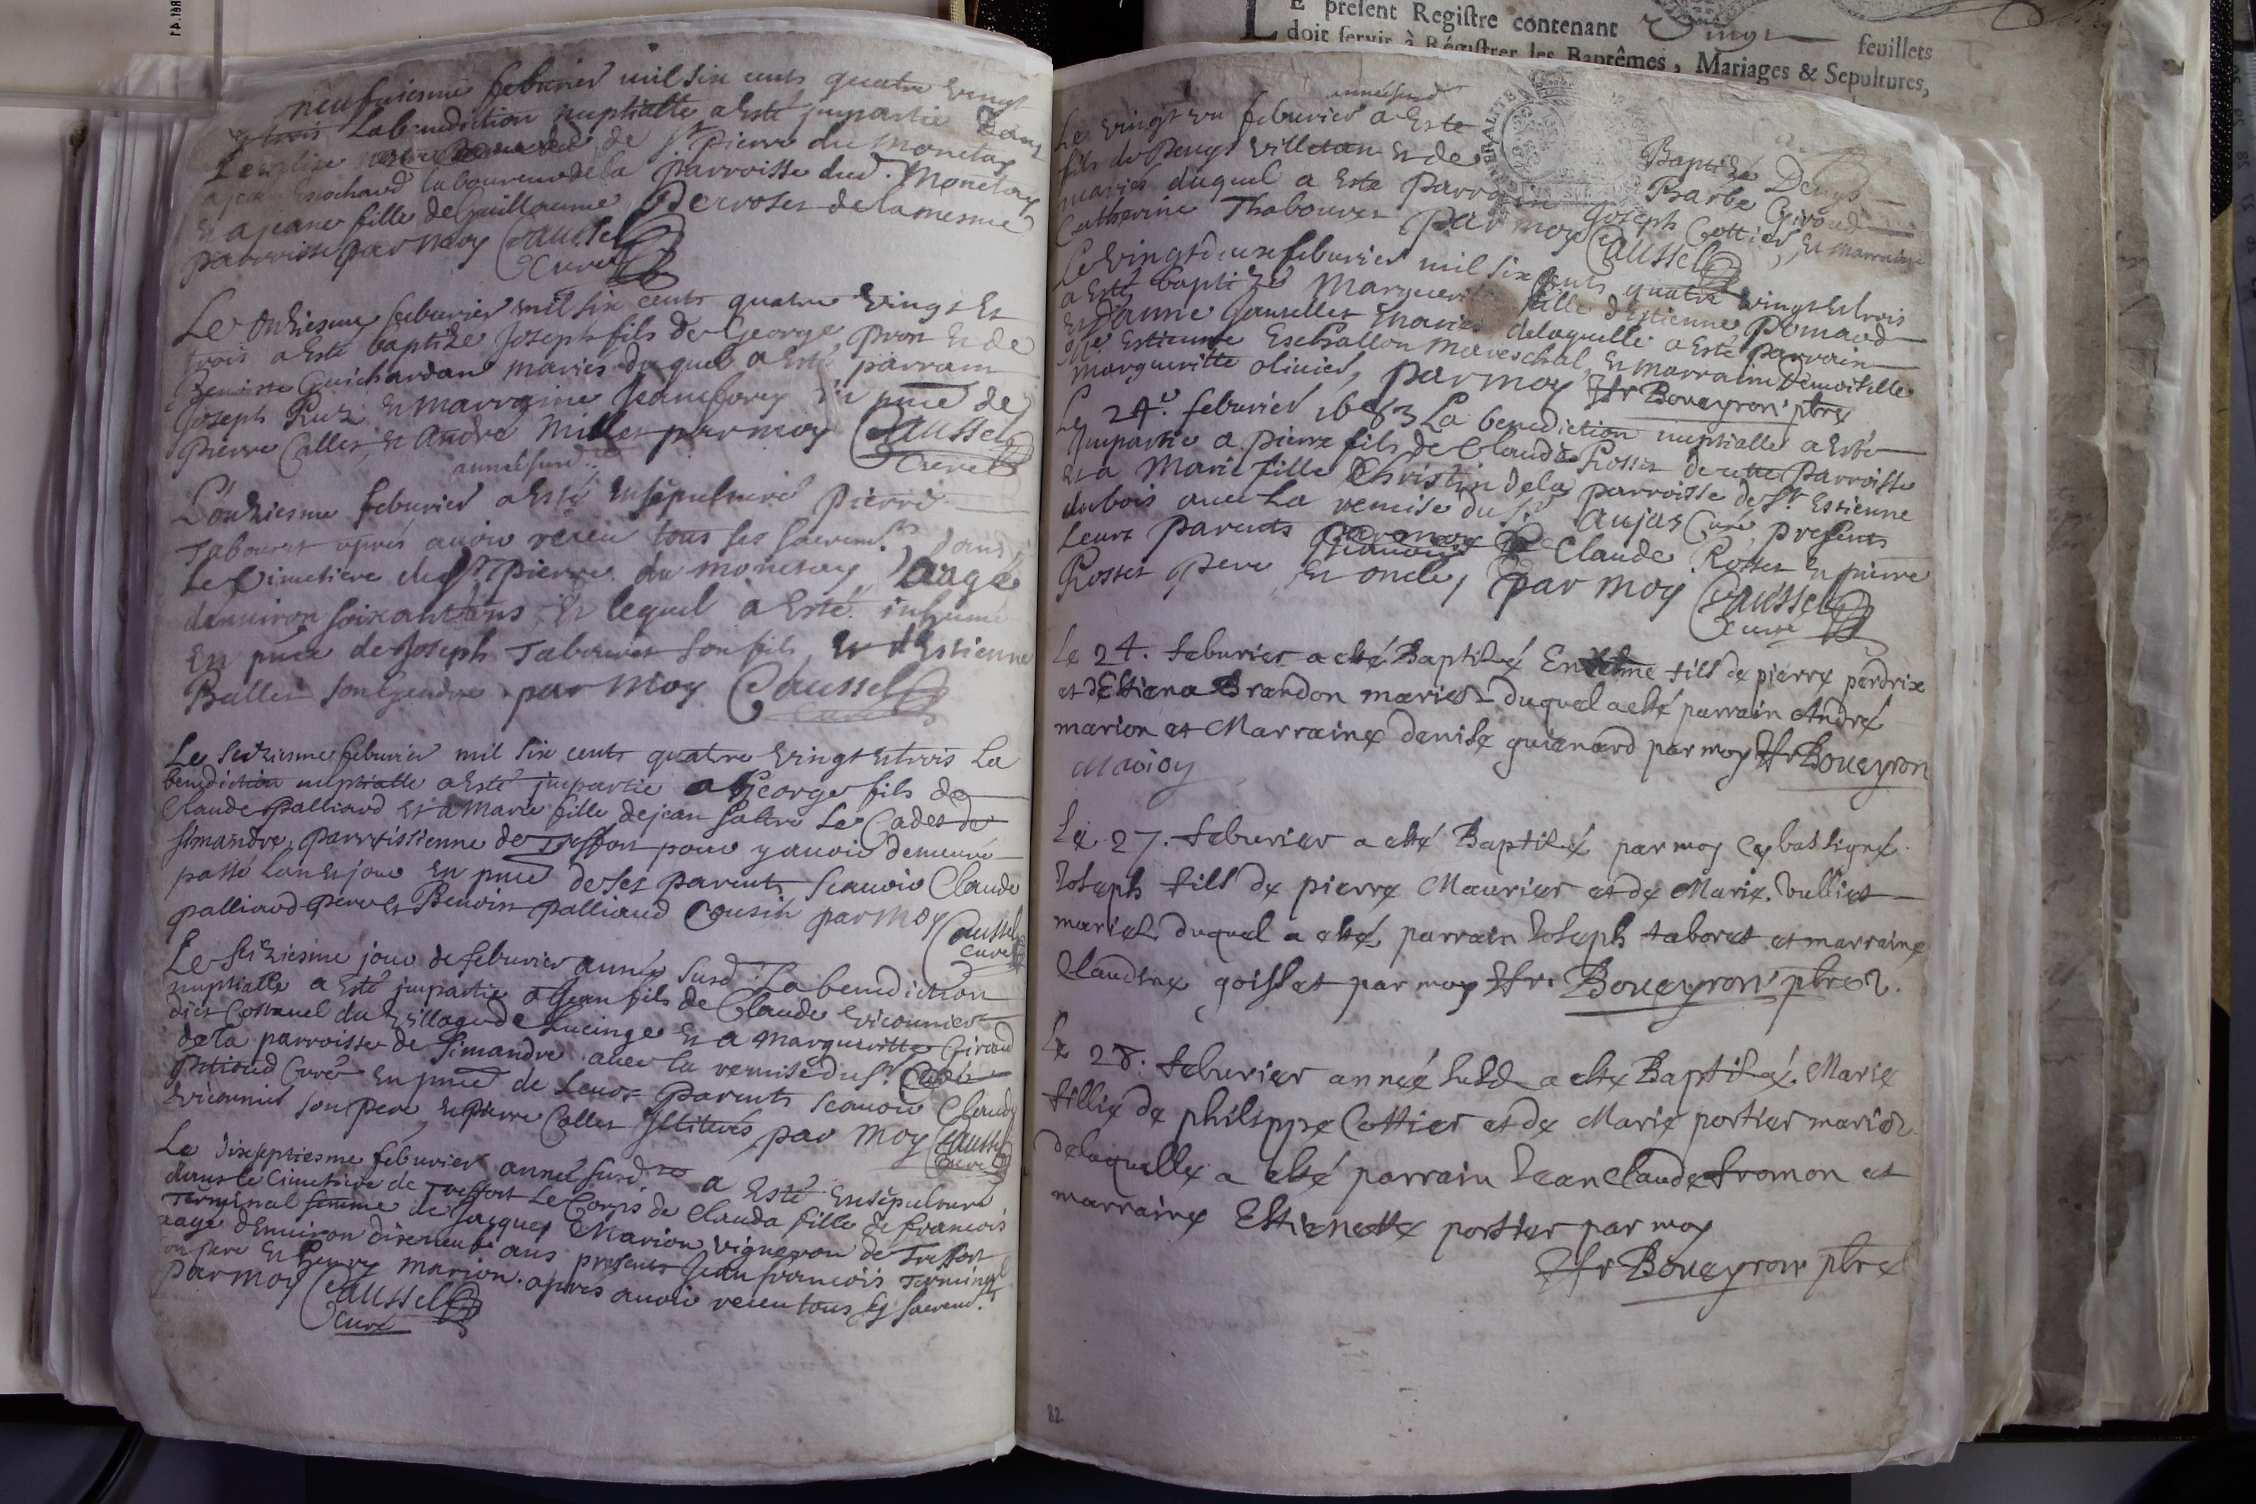 neufviesme feburier mil six cents quatre vingt
et trois La benediction nuptialle a esté impartie dans
L'esglise de st Pierre du Monetay
a jean Brochand laboureur de la parroisse dud. Monetay
et a jeane fille de Guillaume Perroset de la mesme
parroisse par moy Caussel
Curé
Le onziesme feburier mil six cents quatre vingt et
trois a esté baptize Joseph fils de George pron et de
Guichardan mariés duquel a esté parrain
Joseph Ruz et marraine en pnce de
Pierre Callet, et André Millet par moy Caussel
Curé
année susd.
L'onziesme feburier a esté ensepulturé Pierre
Tabouret aprés avoir receu tous ses sacremts dans
Le Cimetiere de st Pierre du monetay, aagé
denuiron soixant ans, et lequel a esté inhumé
En pnce de Joseph Tabouret son fils, et d'Estienne
Bullet son gendre par moy Caussel
Curé
Le seiziesme feburier mil six cents quatre vingt et trois La
benediction nuptialle a esté impartie a George fils de
Claude palliard et a Marie fille de jean Le Cadet de
simandre, parroissienne de Treffort pour y auoir demeuré
passé l'an et jour en pnce de ses parents scauoir Claude
palliard pere et Benoist palliard Cousin par moy Caussel
Curé
Le seiziesme jour de feburier année susd. La benediction
nuptialle a esté impartie a Jean fils de Claude vicounier
dict Colonel du village de Lucinge et a Margueritte Giroud
de la parroisse de simandre auec la remise du sr
pitioud Curé en pnce de leurs parents scauoir Claude
vicounier son pere, et pierre Callet par moy Caussel
Curé
Le dixseptiesme feburier année susd. a esté ensepulturé
dans le Cimetiere de Treffort Le Corps de Clauda fille de francois
Terminal femme de Jacques Marion vigneron de Treffort
aagé d'enuiron dixneuf ans presents Jean francois Terminal
son pere et Henry marion aprés auoir receu tous ses sacremts
par moy Caussel
Curé
E present Registre contenant vingt feuillets
doit servir à Régistrer les Baptêmes, Mariages & Sepultures,
année susd
Le vingt un feburier a este Baptizé Denys
fils de Denys villetan et de Barbe Giroud
mariés duquel a este parrain Joseph Cottier, et marraine
Catherine Thabouret par moy Caussel
Le vingt deux feburier mil six cents quatre vingt et trois
a esté baptizé Marguerite fille d'Estienne Pomard
et d'anne mariés de laquelle a esté parrain
Mre Estienne Eschallon mareschal, et marraine Demoiselle
Marguerite olivier, par moy Boueyron ptre
Le 24e feburier 1683 La benediction nuptialle a esté
impartie a pierre fils de Claude Rosset de cette parroisse
et a Marie fille Christin de la parroisse de st Estienne
du bois auec la remise du sr aujas Curé, presents
leurs parents Claude Rosset et pierre
Rosset pere et oncle, par moy Caussel
Curé
Le 24. feburier a esté Baptisé fils de pierre perdrix
et d'Estiena Brandon maries duquel a esté parrain André
marion et Marraine denise guienard par moy Boueyron
Marion
Le 27. feburier a esté Baptisé par moy cy bas signé
Joseph fils de pierre Maurier et de Marie Vulliet
maries duquel a esté parrain Joseph taboret et marraine
Claudine goisset par moy Boueyron ptre
Le 28. feburier année susd a esté Baptisé Marie
fillie de philippe Cottier et de Marie portier maries
delaquelle a esté parrain Jean Claude fromon et
marraine Estienette portier par moy
Boueyron ptre
82